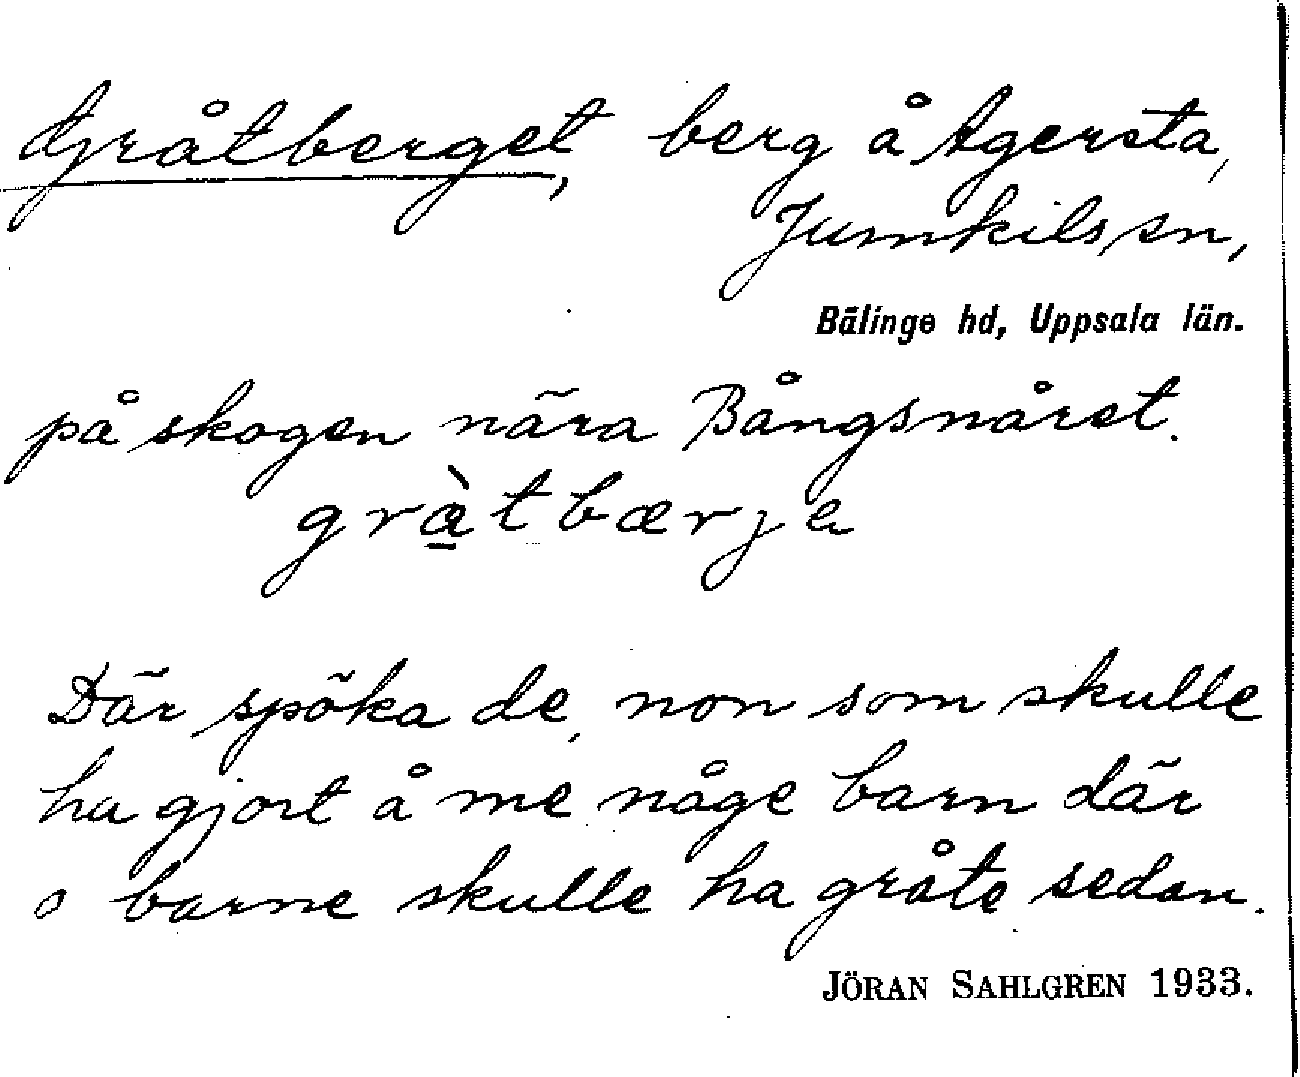 Gråtberget, berg å Agersta,
Jumkils sn,
Bälinge hd, Uppsala län.
på skogen nära Bångsnåret.
grà̱tbærjɐ
Där spöka de, non som skulle
ha gjort å me någe barn där
o barne skulle ha gråte sedan.
JÖRAN SAHLGREN 1933.